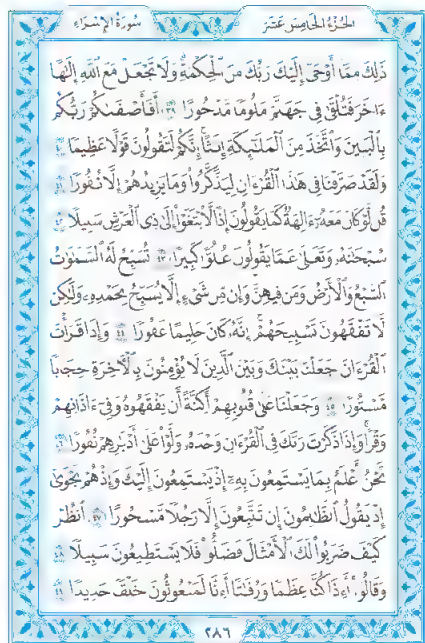 الجزء الخامس عشر
سورة الإسراء
ذَٰلِكَ مِمَّآ أَوْحَىٰٓ إِلَيْكَ رَبُّكَ مِنَ ٱلْحِكْمَةِ وَلَا تَجْعَلْ مَعَ ٱللَّهِ إِلَٰهًا
ءَاخَرَ فَتُلْقَىٰ فِى جَهَنَّمَ مَلُومًا مَّدْحُورًا ٣٩ أَفَأَصْفَىٰكُمْ رَبُّكُم
بِٱلْبَنِينَ وَٱتَّخَذَ مِنَ ٱلْمَلَٰٓئِكَةِ إِنَٰثًا إِنَّكُمْ لَتَقُولُونَ قَوْلًا عَظِيمًا ٤٠
وَلَقَدْ صَرَّفْنَا فِى هَٰذَا ٱلْقُرْءَانِ لِيَذَّكَّرُوا۟ وَمَا يَزِيدُهُمْ إِلَّا نُفُورًا ٤١
قُل لَّوْ كَانَ مَعَهُۥٓ ءَالِهَةٌ كَمَا يَقُولُونَ إِذًا لَّٱبْتَغَوْا۟ إِلَىٰ ذِى ٱلْعَرْشِ سَبِيلًا ٤٢
سُبْحَٰنَهُۥ وَتَعَٰلَىٰ عَمَّا يَقُولُونَ عُلُوًّا كَبِيرًا ٤٣ تُسَبِّحُ لَهُ ٱلسَّمَٰوَٰتُ
ٱلسَّبْعُ وَٱلْأَرْضُ وَمَن فِيهِنَّ وَإِن مِّن شَىْءٍ إِلَّا يُسَبِّحُ بِحَمْدِهِۦ وَلَٰكِن
لَّا تَفْقَهُونَ تَسْبِيحَهُمْ إِنَّهُۥ كَانَ حَلِيمًا غَفُورًا ٤٤ وَإِذَا قَرَأْتَ
ٱلْقُرْءَانَ جَعَلْنَا بَيْنَكَ وَبَيْنَ ٱلَّذِينَ لَا يُؤْمِنُونَ بِٱلْءَاخِرَةِ حِجَابًا
مَّسْتُورًا ٤٥ وَجَعَلْنَا عَلَىٰ قُلُوبِهِمْ أَكِنَّةً أَن يَفْقَهُوهُ وَفِىٓ ءَاذَانِهِمْ
وَقْرًا وَإِذَا ذَكَرْتَ رَبَّكَ فِى ٱلْقُرْءَانِ وَحْدَهُۥ وَلَّوْا۟ عَلَىٰٓ أَدْبَٰرِهِمْ نُفُورًا ٤٦
نَّحْنُ أَعْلَمُ بِمَا يَسْتَمِعُونَ بِهِۦٓ إِذْ يَسْتَمِعُونَ إِلَيْكَ وَإِذْ هُمْ نَجْوَىٰٓ
إِذْ يَقُولُ ٱلظَّٰلِمُونَ إِن تَتَّبِعُونَ إِلَّا رَجُلًا مَّسْحُورًا ٤٧ ٱنظُرْ
كَيْفَ ضَرَبُوا۟ لَكَ ٱلْأَمْثَالَ فَضَلُّوا۟ فَلَا يَسْتَطِيعُونَ سَبِيلًا ٤٨
وَقَالُوٓا۟ أَءِذَا كُنَّا عِظَٰمًا وَرُفَٰتًا أَءِنَّا لَمَبْعُوثُونَ خَلْقًا جَدِيدًا ٤٩
٢٨٦